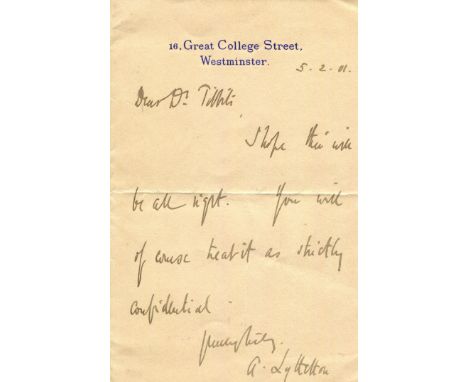 16, Great College Street,
Westminster.
5. 2. 01.
Dear Dr. Tibbits
I hope this will
be all right. You will
of course treat it as strictly
confidential.
A. Lyttelton